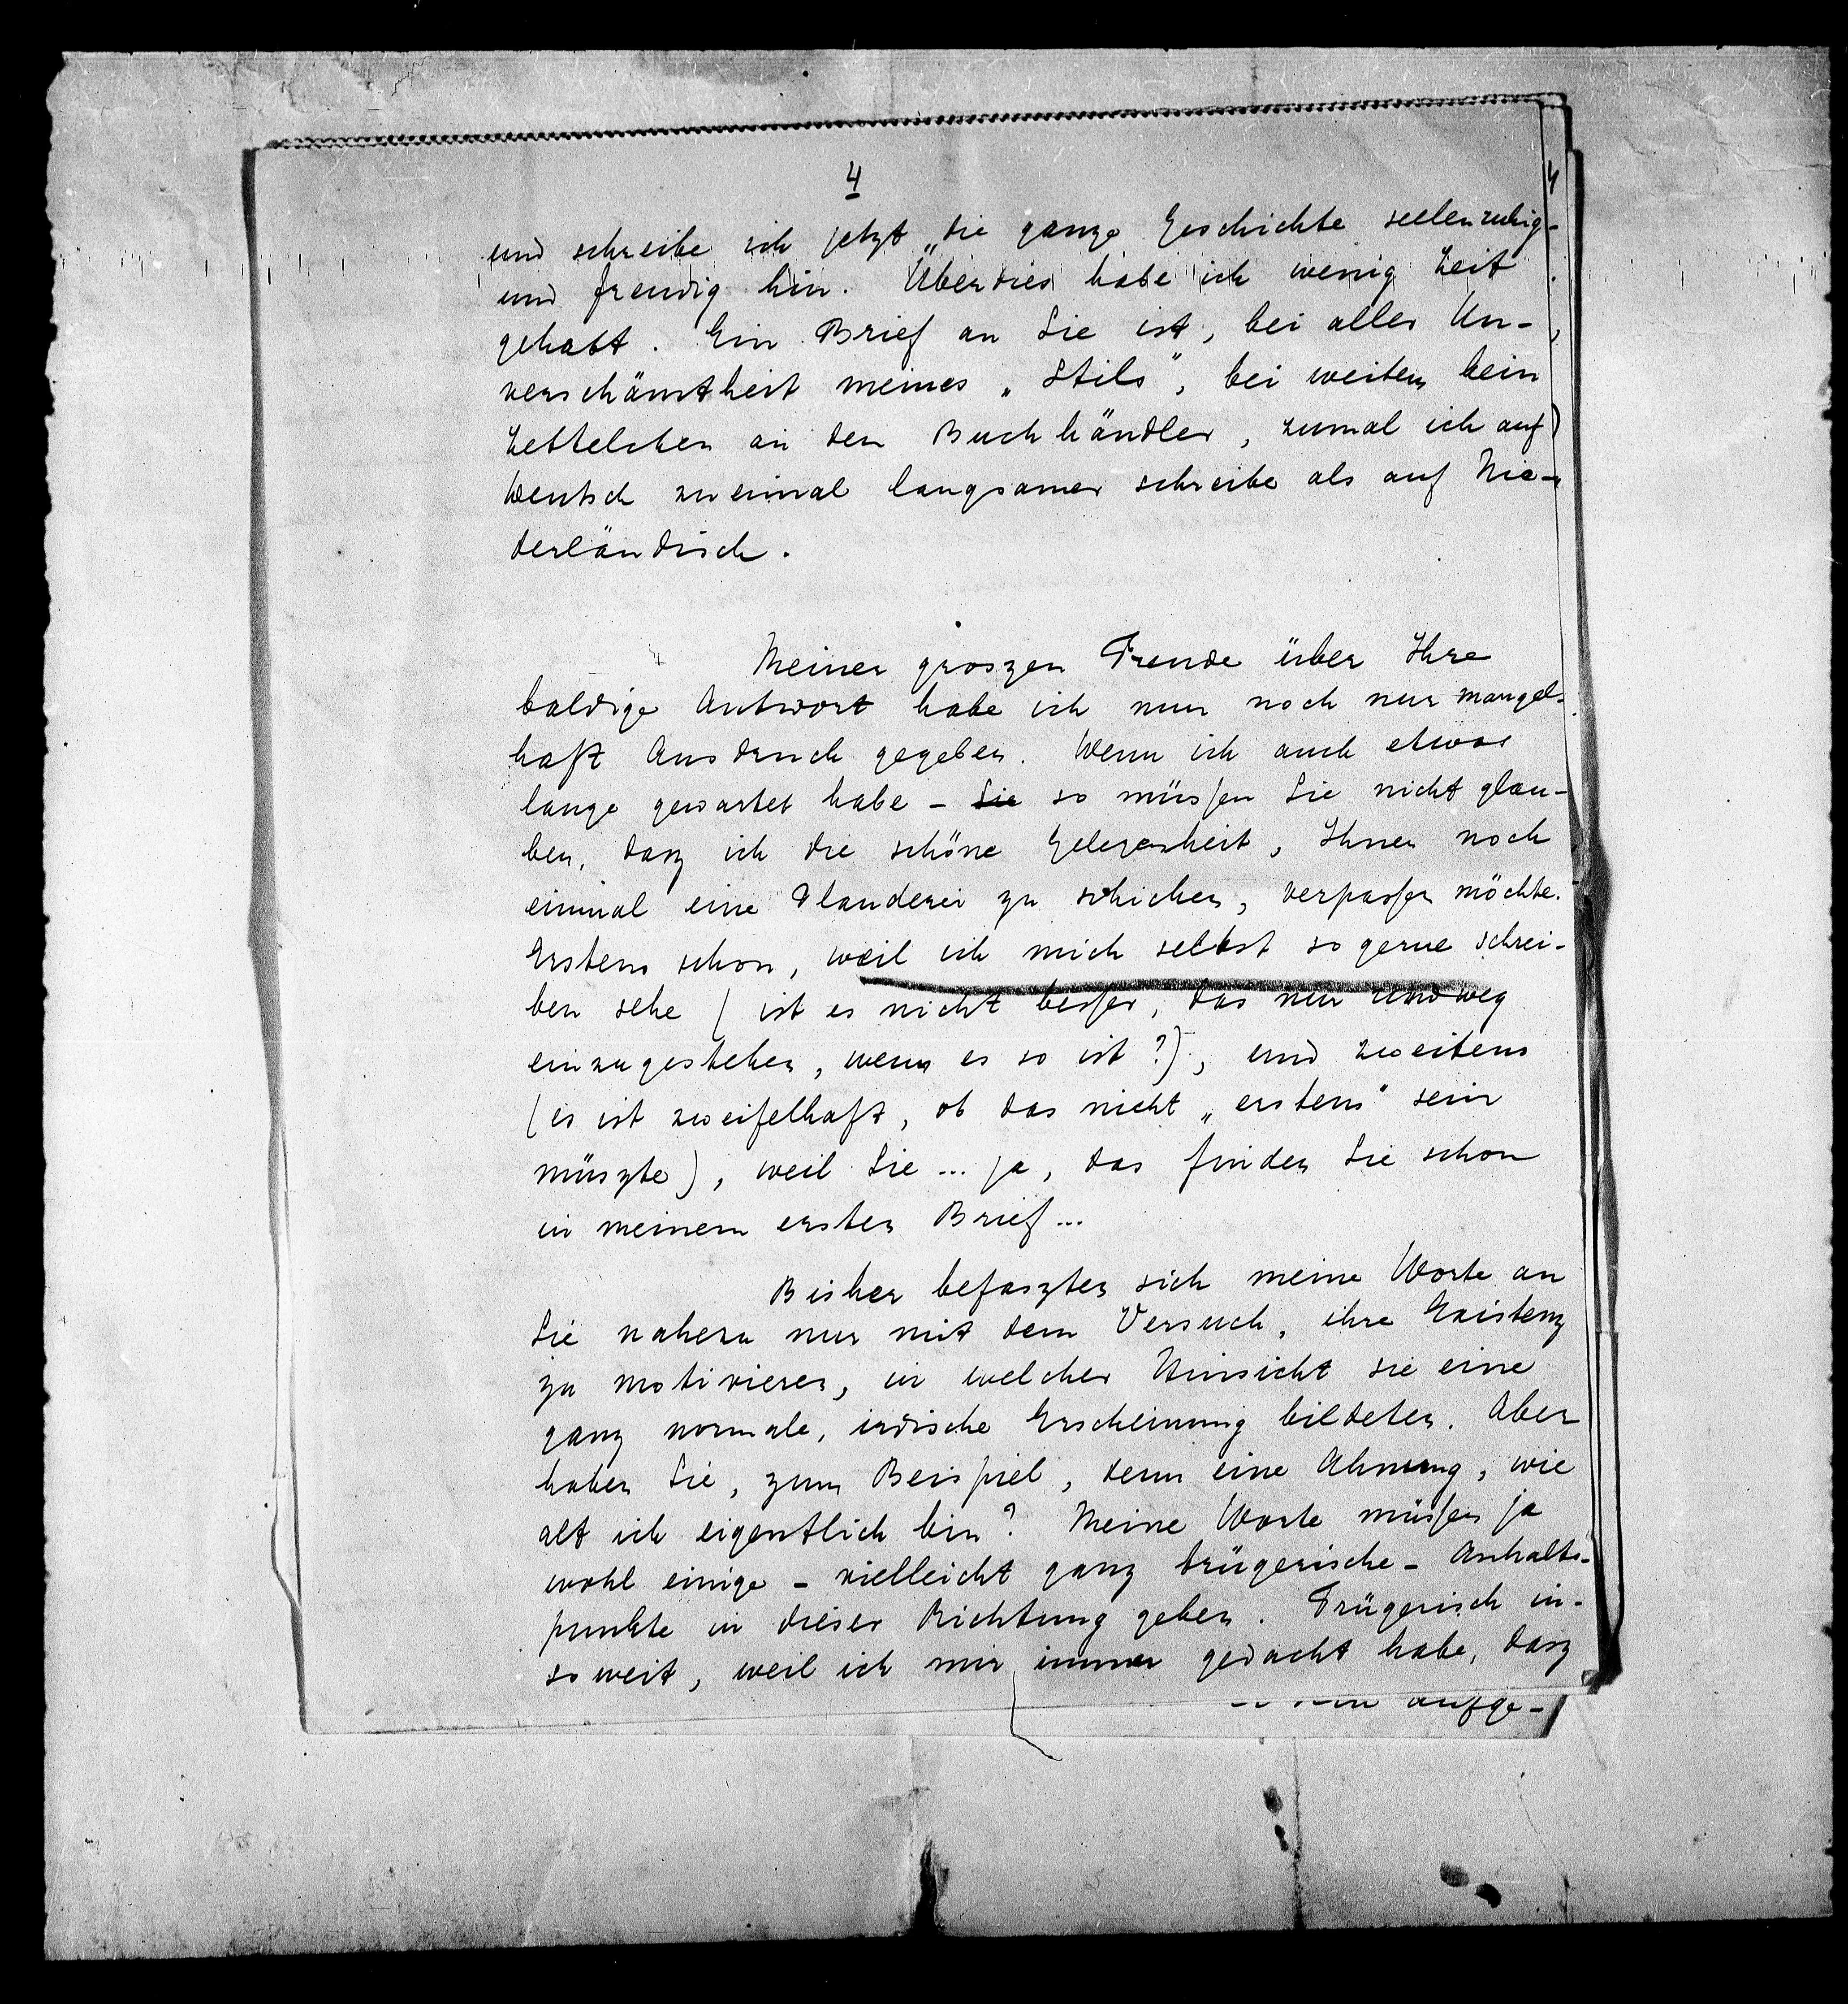 4
und schreibe ich jetzt „die ganze Geschichte seelenruhig-
und freudig hin. Überdies habe ich wenig Zeit
gehabt. Ein Brief an Sie ist, bei aller Un-
verschämtheit meines „Stils", bei weitem kein
Zettelchen an den Buchhändler, zumal ich auf
Deutsch zweimal langsamer schreibe als auf Nie-
derländisch.
Meiner groszen Freude über Ihre
baldige Antwort habe ich nun noch nur mangel-
haft Ausdruck gegeben. Wenn ich auch etwas
lange gewartet habe - Sie so müssen Sie nicht glau-
ben, dasz ich die schöne Gelegenheit, Ihnen noch
einmal eine Plauderei zu schicken, verpassen möchte.
Erstens schon, weil ich mich selbst so gerne schrei-
ben sehe (ist es nicht besser, das nur rundweg
einzugestehen, wenn es so ist?), und zweitens
(es ist zweifelhaft, ob das nicht „erstens" sein
müszte), weil Sie ... ja, das finden Sie schon
in meinem ersten Brief ...
Bisher befaszten sich meine Worte an
Sie nahezu nur mit dem Versuch, ihre Existenz
zu motivieren, in welcher Hinsicht sie eine
ganz normale, irdische Erscheinung bildeten. Aber
haben Sie, zum Beispiel, denn eine Ahnung, wie
alt ich eigentlich bin? Meine Worte müssen ja
wohl einige - vielleicht ganz trügerische - Anhalts-
punkte in dieser Richtung geben. Trügerisch in-
soweit, weil ich mir immer gedacht habe, dasz
aufge-